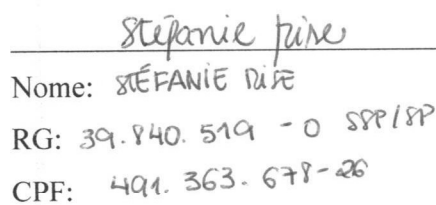 Stéfanie
Nome: STÉFANIE
RG: 39.840.519 - 0 SSP/SP
CPF: 491.363.678-26